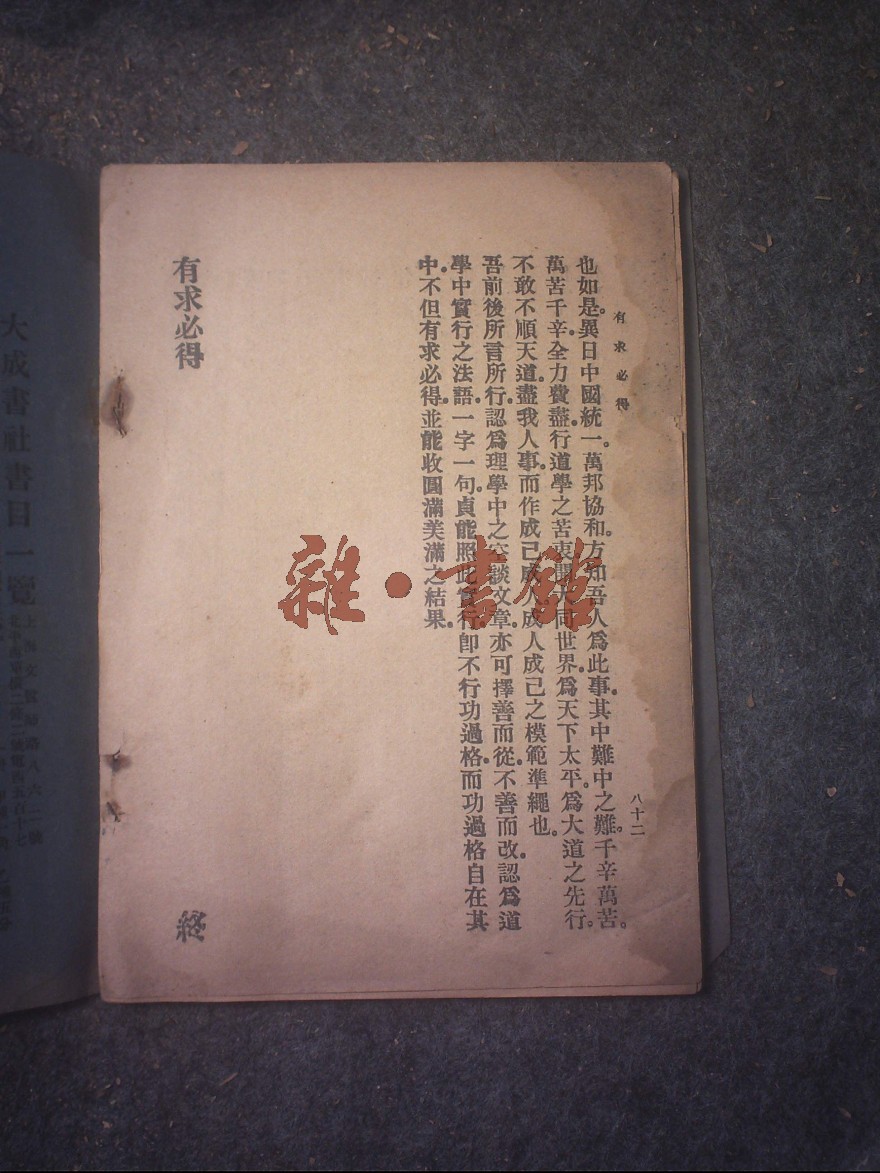 有求必得
八十二
也如是。異日中國統一。萬邦協和。方知吾人爲此事。其中難中之難。千辛萬苦。
萬苦千辛。全力費盡。行道學之苦衷。開大同世界。爲天下太平。爲大道之先行。
不敢不順天道。盡我人事。而作成己成人成人成己之模範準繩也。
吾前後所言所行。認爲理學中之空談文章。亦可擇善而從。不善而改。認爲道
學中實行之法語。一字一句。貞能照此實行。即不行功過格。而功過格自在其
中。不但有求必得。並能收圓滿美滿之結果。
有求必得
終
雜·書館
大成書社書目一覽